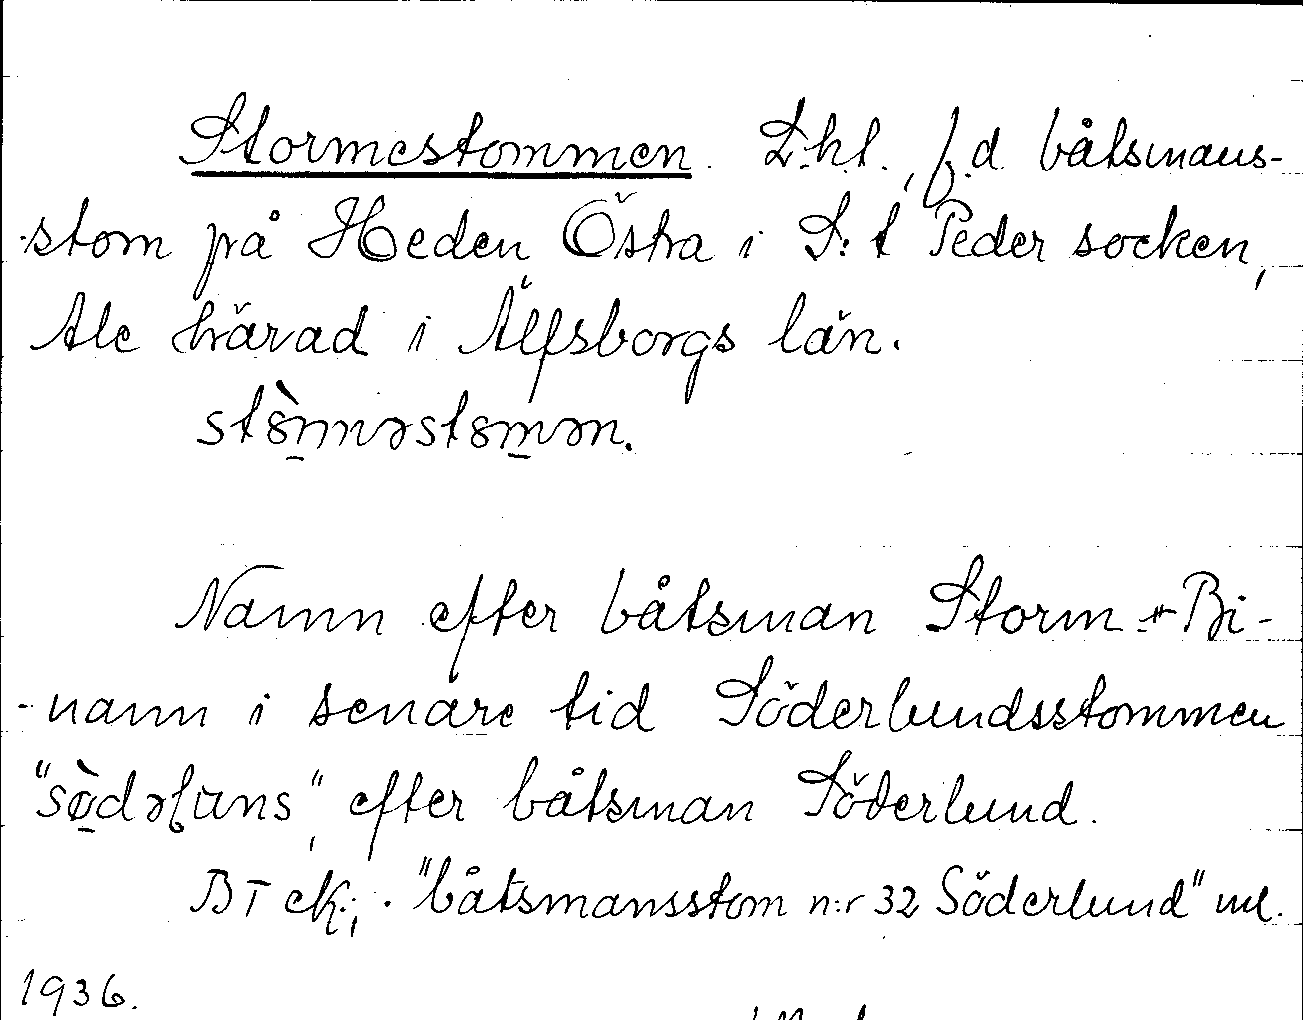 Stormestommen. Lht., f.d båtsmans-
-stom på Heden Östra i S:t Peder socken,
Ale härad i Älfsborgs län.
Namn efter båtsman Storm + Bi-
-namn i senare tid Söderlundsstommen
"sö̀dəɭuns", efter båtsman Söderlund.
BT ek.; "båtsmansstom n:r 32 Söderlund"
1936.